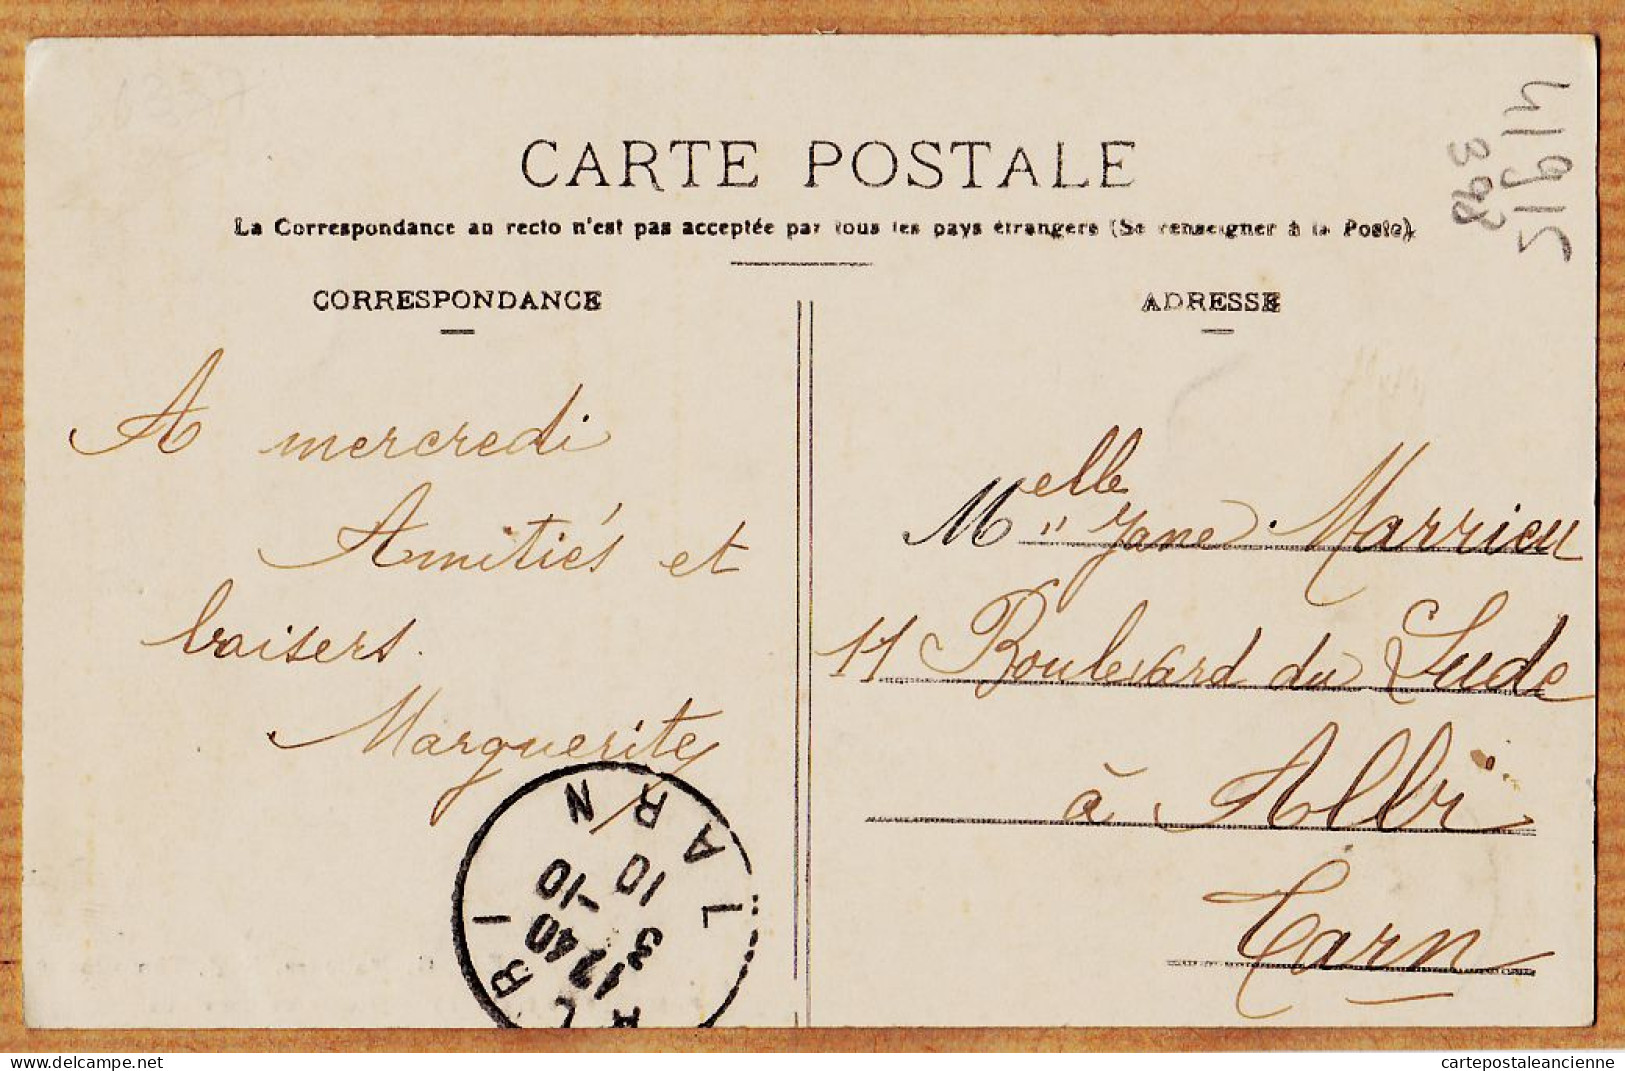 CARTE POSTALE
La Correspondance au recto n'est pas acceptée par tous les pays étrangers (Se renseigner à la Poste)
CORRESPONDANCE
A mercredi
Amitiés et
baisers.
Marguerite
ADRESSE
Melle Jane Marrieu
11 Boulevard du Lude
à Albi
Tarn
ALBI TARN
1240
3 -10
10
398
cartepostaleancienne